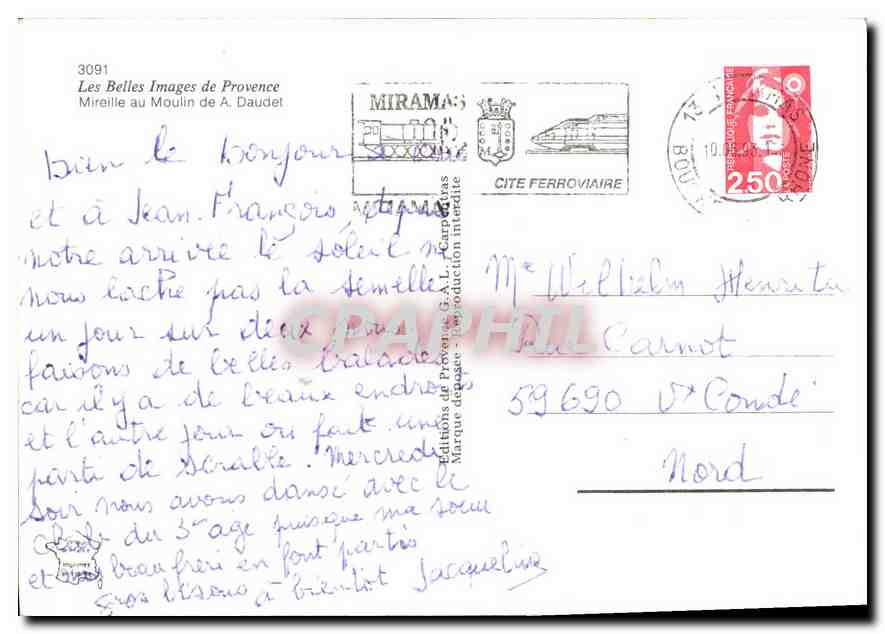 3091
Les Belles Images de Provence
Mireille au Moulin de A. Daudet
MIRAMAS
CITE FERROVIAIRE
MIRAMAS
13
BOU
RHONE
REPUBLIQUE FRANÇAISE
LA POSTE
2,50
bien le bonjour
et à Jean-François, depuis
notre arrivée le soleil ne
nous lache pas la semelle
un jour sur deux nous
faisons de belles balades
car il y a de beaux endroits
et l'autre jour on fait une
parti de scrable. Mercredi
soir nous avons dansé avec le
Club du 3me age puisque ma soeur
et mon beau frère en font partis
gros bisous à bientot Jacqueline
Editions de Provence G.A.L. - Carpentras
Marque déposée - Reproduction interdite
CPAPHIL
Me Wilhelm Henriette
Rue Carnot
59690 Vx Condé
Nord